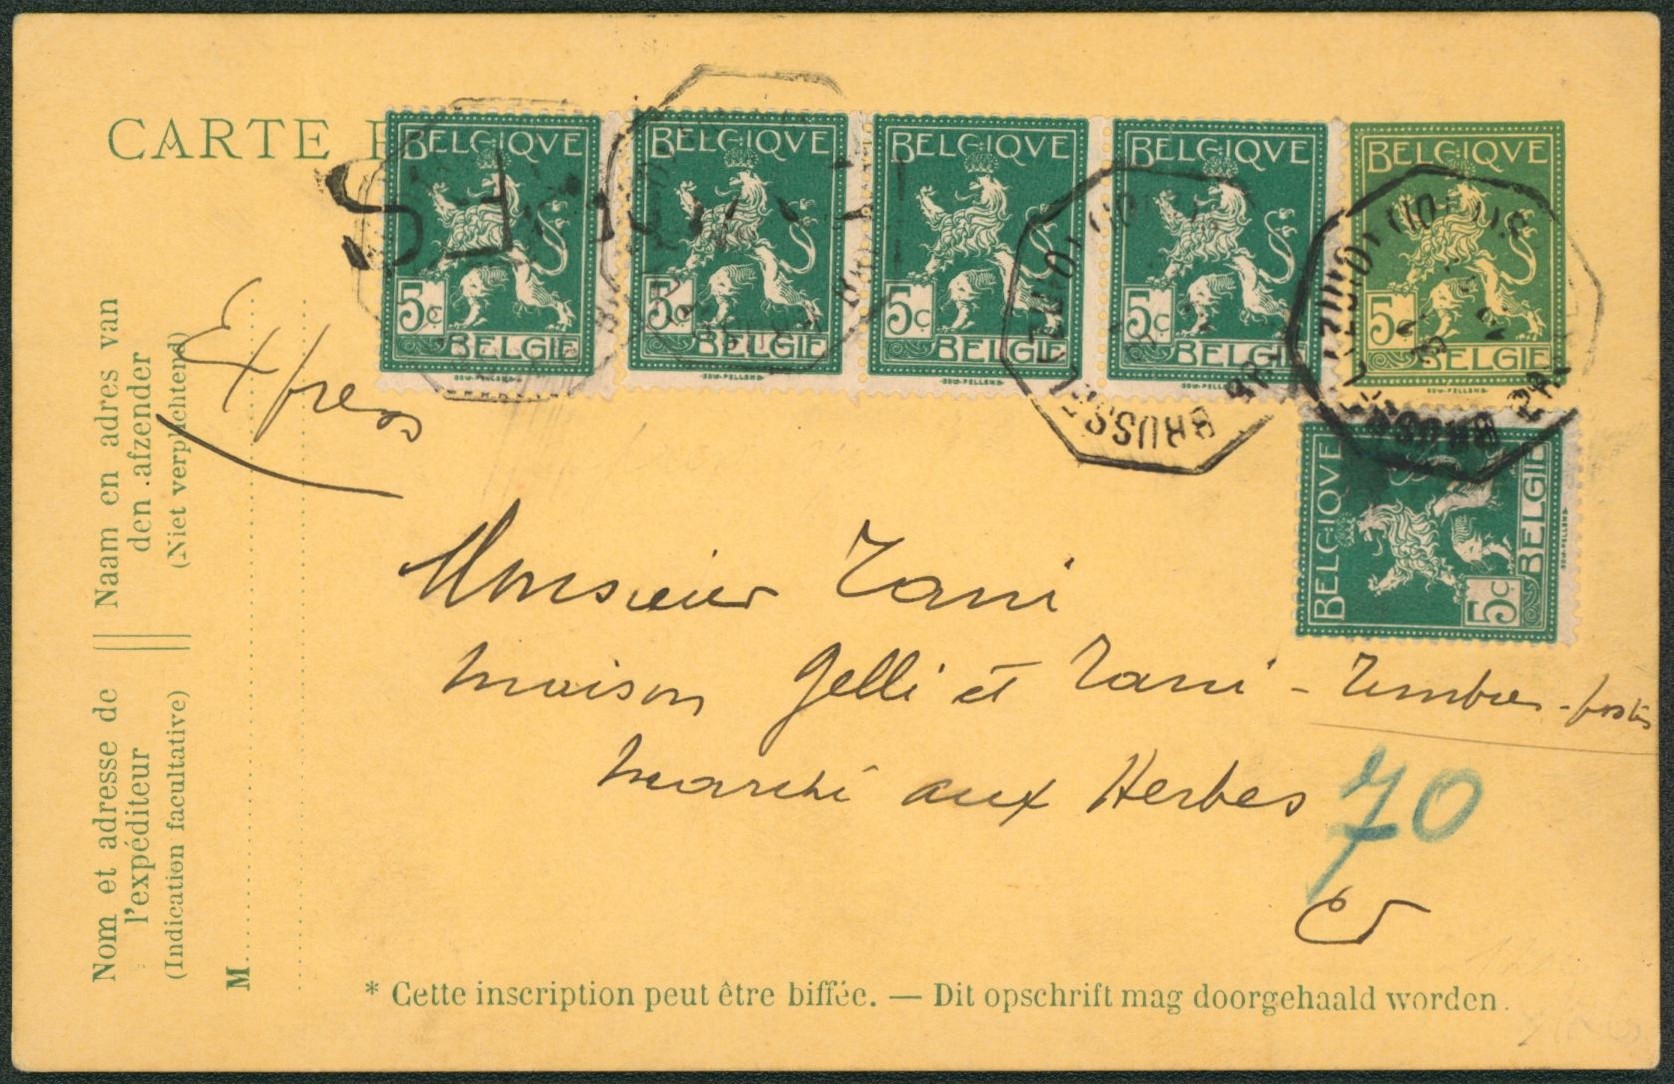 CARTE
BELGIQVE
5c
BELGIE
BELGIQVE
5c
BELGIE
BELGIQVE
5c
BELGIE
BELGIQVE
5c
BELGIE
BELGIQVE
5c
BELGIE
BELGIQVE
5c
BELGIE
BRUSSEL
BRUSSEL
Naam en adres van
den afzender
(Niet verplichtend)
Nom et adresse de
l'expéditeur
(Indication facultative)
M
Express
Monsieur Zani
maison Gelli et Zani - Timbres-postes
Marché aux Herbes
70
* Cette inscription peut être biffée. — Dit opschrift mag doorgehaald worden.